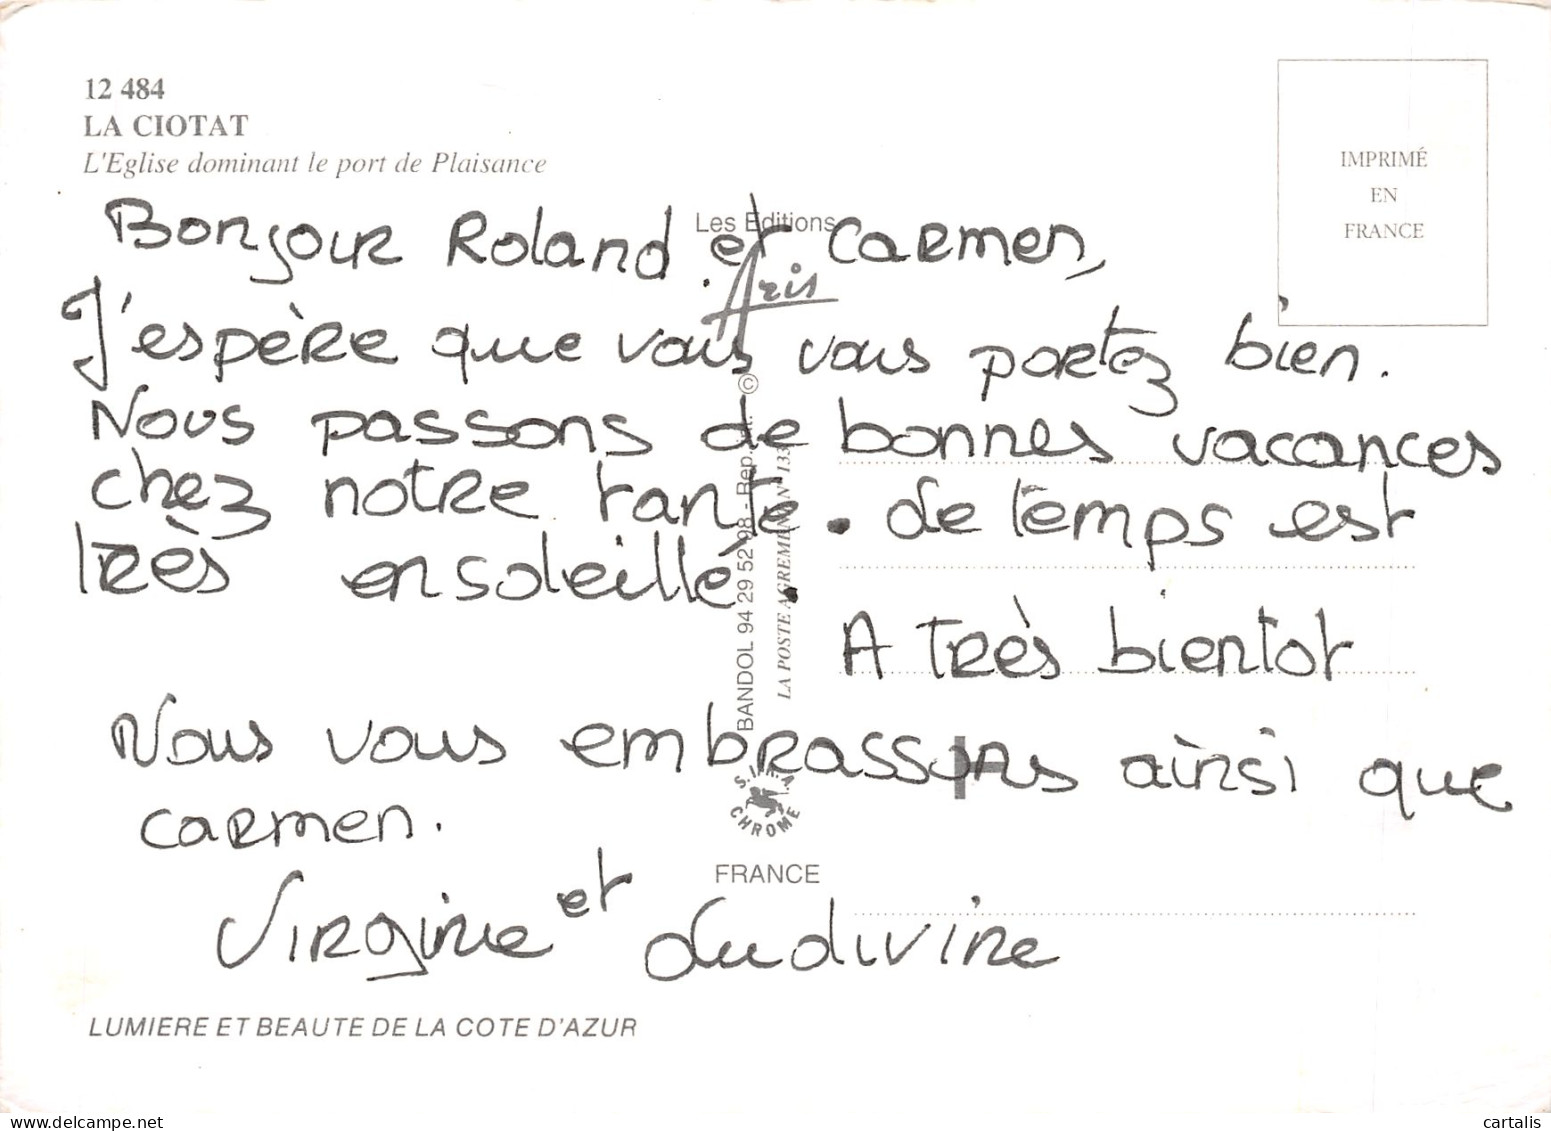 12 484
LA CIOTAT
L'Eglise dominant le port de Plaisance
IMPRIMÉ
EN
FRANCE
Les Editions
Aris
Bonjour Roland et Carmen,
J'espère que vous vous portez bien.
Nous passons de bonnes vacances
chez notre tante. Le temps est
très ensoleillé.
A très bientot
Nous vous embrassons ainsi que
Carmen.
Virginie et Ludivine
©
BANDOL 94 29 52 98 - Rep.
LA POSTE AGREMENT N° 133
CHROME
FRANCE
LUMIERE ET BEAUTE DE LA COTE D'AZUR
cartalis